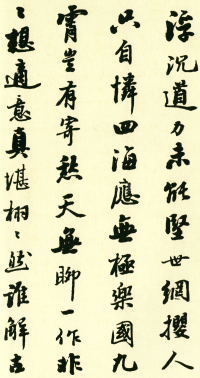 浮沉道力未能堅世網攖人
只自憐四海應無極樂國九
霄豈有寄愁天無聊一作非
〻想適意真堪栩〻然誰解古